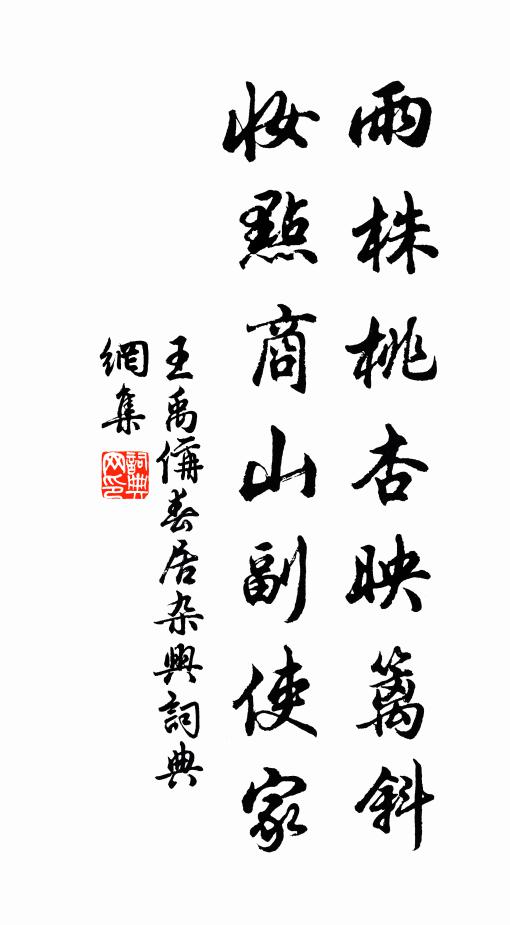 兩株桃杏映籬斜
妝點商山副使家
王禹偁春居杂興詞典
網集
詞典網印